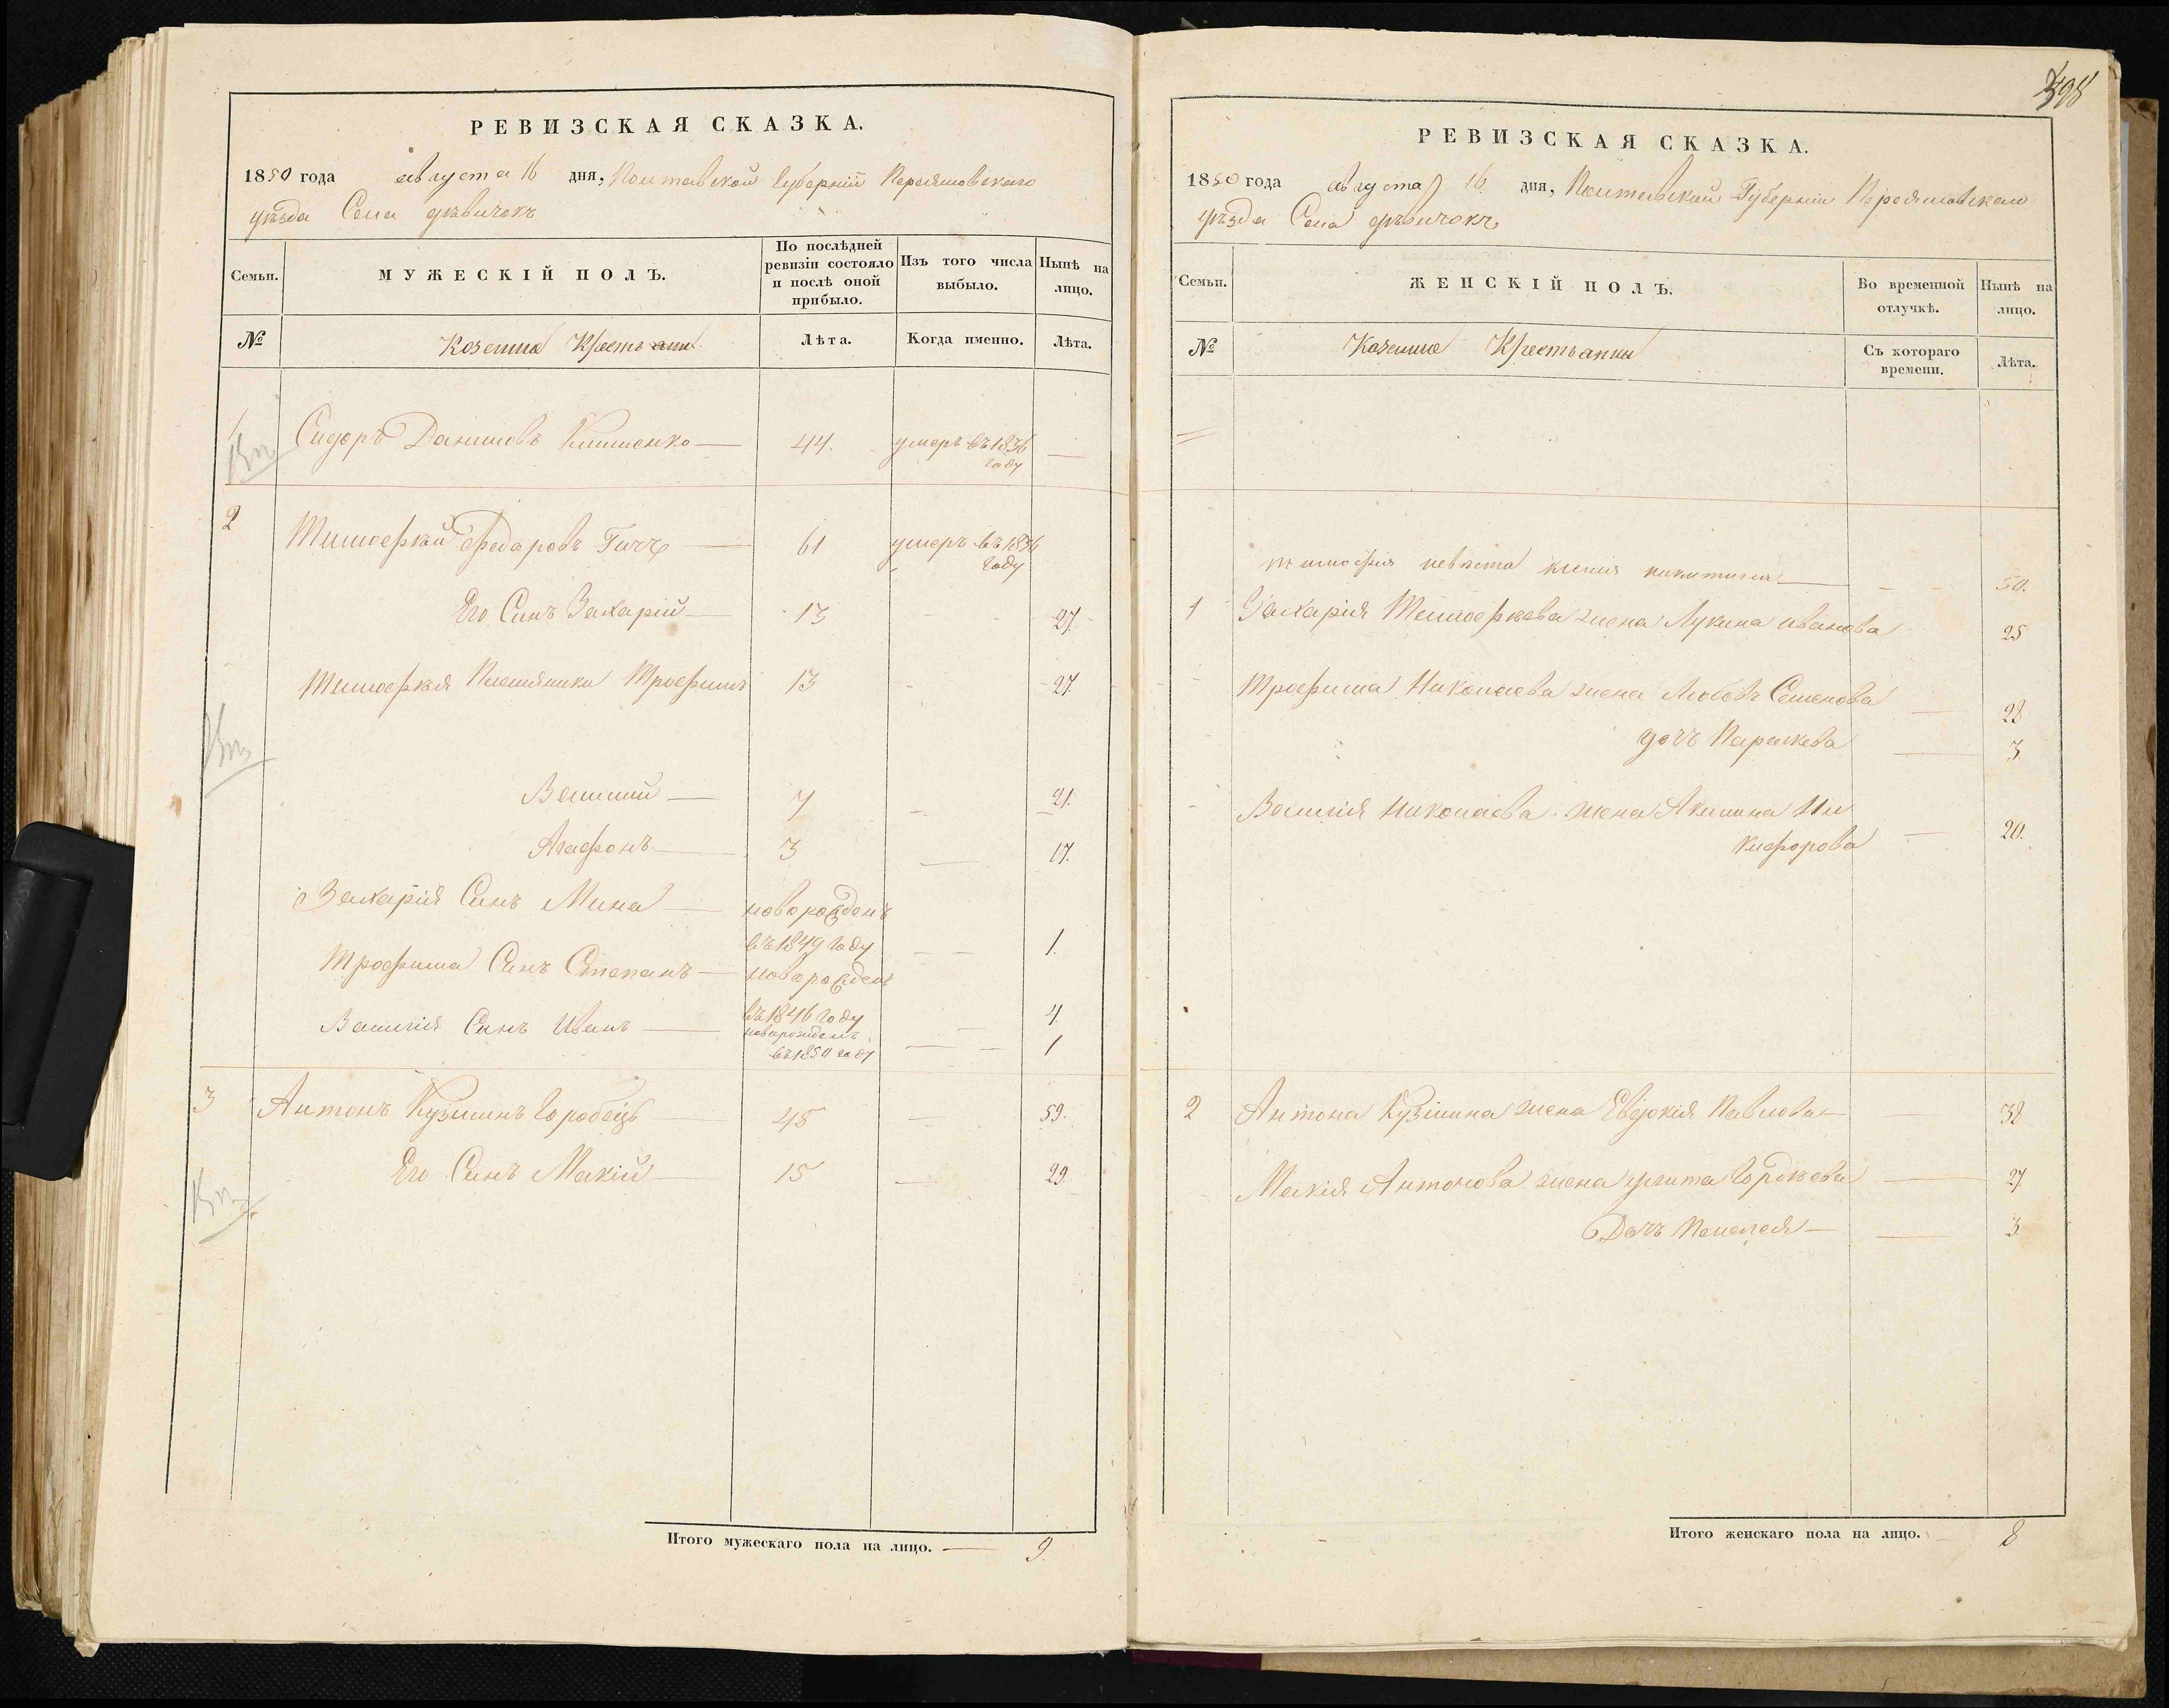 РЕВИЗСКАЯ СКАЗКА.
1850 года августа 16 дня, Полтавской Губернии Переяшовскаго
уѣзда Села дѣвичокъ
Семьи.
МУЖЕСКІЙ ПОЛЪ.
По послѣдней ревизіи состояло и послѣ оной прибыло.
Изъ того числа выбыло.
Нынѣ на лицо.
№
Козенна Крестьяни
Лѣта.
Когда именно.
Лѣта.
1 Сидоръ Даниловъ 44. умеръ въ 1836 году —
2 Тимофѣй Федаровъ 61 умеръ въ 1836 году
Его Синъ Захарій — 13 27.
Тимофѣя Племяники Трофимъ 13 - 27.
Василий — 7 21.
Агафонъ — 3 17.
Захарія Синъ Мина — новорожденъ въ 1849 году 1.
Трофима Синъ Степанъ — новорожденъ въ 1846 году 4.
Василія Синъ Иванъ — новорожденъ въ 1850 году 1
3 Антонъ Кузминъ Горобець 45 59.
Его Синъ Мокій 15 29.
Итого мужескаго пола на лицо. — 9.
398
РЕВИЗСКАЯ СКАЗКА.
1850 года августа 16 дня, Полтавской Губерніи Переяшовскаго
уѣзда Села дѣвичокъ
Семьи.
ЖЕНСКІЙ ПОЛЪ.
Во временной отлучкѣ.
Нынѣ на лицо.
№
Козение Крестьянки
Съ котораго времени.
Лѣта.
тимофія невѣста ксенія никитина — 50.
1 Захарія Тимофѣева жена Лукина иванова 25
Трофима Николаева жена Любовъ Семенова — 28
дочъ Параскева — 3.
Василія Николаева жена Акилина Ни
кифорова — 20.
2 Антона Кузмина жена Евдокія Павлова — 38
Мокія Антонова жена — 27.
Дочъ Пелагея — 3.
Итого женскаго пола на лицо. 8